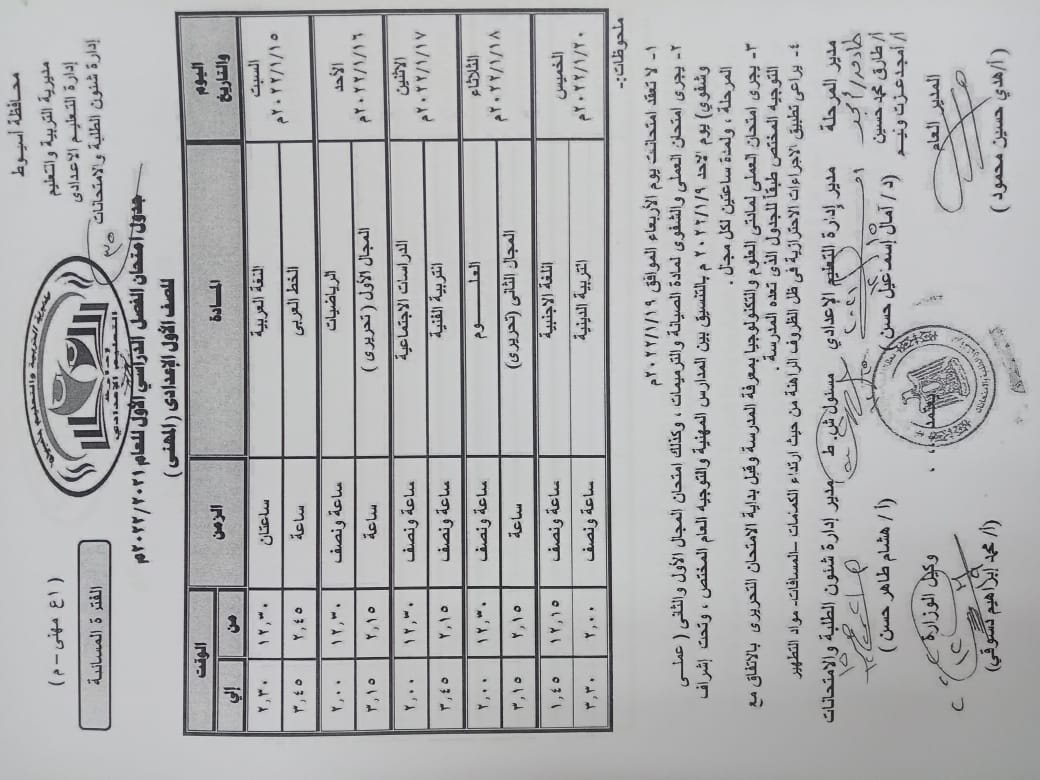 محافظة أسيوط
مديرية التربية والتعليم
إدارة التعليم الاعدادى
إدارة شئون الطلبة والامتحانات
( ١ع مهنى – م )
الفترة المسائية
جدول امتحان الفصل الدراسي الأول للعام ٢٠٢٢/٢٠٢١م
للصف الأول الإعدادى (المهنى )
اليوم والتاريخ المــادة الزمن الوقت
من إلي
السبت ٢٠٢٢/١/١٥م اللغة العربية ساعتان ١٢,٣٠ ٢,٣٠
الخط العربى ساعة ٢,٤٥ ٣,٤٥
الأحد ٢٠٢٢/١/١٦م الرياضيات ساعة ونصف ١٢,٣٠ ٢,٠٠
المجال الأول ( تحريرى ) ساعة ٢,١٥ ٣,١٥
الاثنين ٢٠٢٢/١/١٧م الدراسات الاجتماعية ساعة ونصف ١٢,٣٠ ٢,٠٠
التربية الفنية ساعة ونصف ٢,١٥ ٣,٤٥
الثلاثاء ٢٠٢٢/١/١٨م العلــــوم ساعة ونصف ١٢,٣٠ ٢,٠٠
المجال الثانى (تحريرى ) ساعة ٢,١٥ ٣,١٥
الخميس ٢٠٢٢/١/٢٠م اللغة الاجنبية ساعة ونصف ١٢,١٥ ١,٤٥
التربية الدينية ساعة ونصف ٢,٠٠ ٣,٣٠
ملحوظات:-
١- لا تعقد امتحانات يوم الأربعاء الموافق ٢٠٢٢/١/١٩م
٢- يجرى امتحان العملى والشفوى لمادة الصيانة والترميمات ، وكذلك امتحان المجال الأول والثانى ( عملـى
وشفوي) يوم الاحد ٢٠٢٢/١/٩ م بالتنسيق بين المدارس المهنية والتوجيه العام المختص ، وتحت إشراف
المرحلة ، ولمدة ساعتين لكل مجال .
٣- يجرى امتحان العملى لمادتى العلوم والتكنولوجيا بمعرفة المدرسة وقبل بداية الامتحان التحريرى بالاتفاق مع
التوجيه المختص طبقاً للجدول الذى تعده المدرسة .
٤- يراعى تطبيق الاجراءات الاحترازية فى ظل الظروف الراهنة من حيث ارتداء الكمامات -المسافات- مواد التطهير
مدير المرحلة مدير إدارة التعليم الإعدادي مسئول ش. ط مدير إدارة شئون الطلبة والامتحانات
أ/ طارق محمد حسين
أ/ أمجد عزت ونيـم (د/ آمال إسماعيل حسن ) (أ / هشام طاهر حسن )
يعتمد ،،
المدير العام وكيل الوزارة
(أ/هدي حسين محمود ) (أ/ محمد إبراهيم دسوقي)